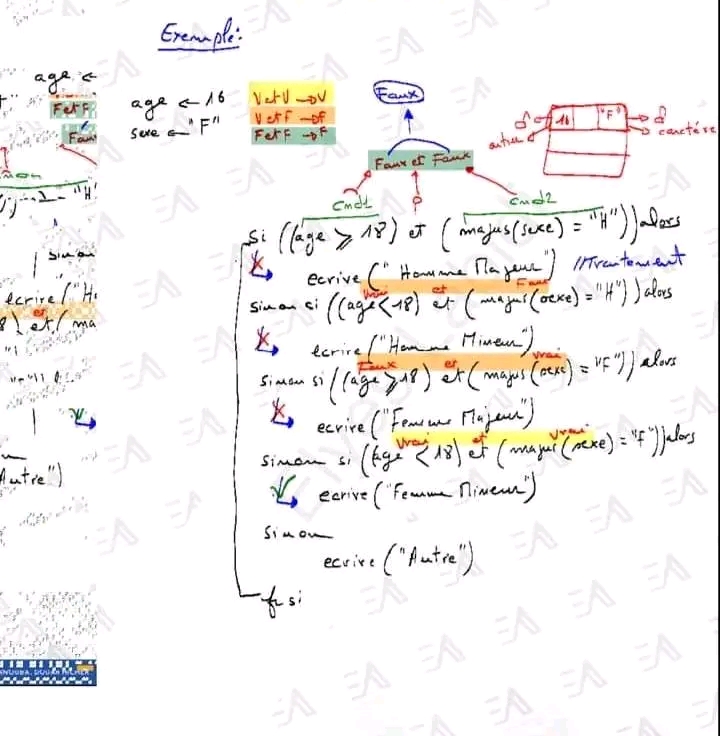 Exemple:
age ←
age ← 16
sexe ← "F"
V et V → V
V et F → F
F et F → F
Faux
Faux et Faux
16
"F"
caractère
cnd1
cnd2
Si ((age ≥ 18) et (majus(sexe) = "H")) alors
ecrire ("Homme Majeur") //Traitement
Vrai et Faux
sinon si ((age < 18) et (majus(sexe) = "H")) alors
ecrire ("Homme Mineur")
Faux et Vrai
sinon si ((age ≥ 18) et (majus(sexe) = "F")) alors
ecrire ("Femme Majeur")
Vrai et Vrai
sinon si (age < 18) et (majus(sexe) = "F")) alors
ecrire ("Femme Mineur")
sinon
ecrire ("Autre")
fin si
F et F
Faux
sinon
ecrire ("H
et
Autre")